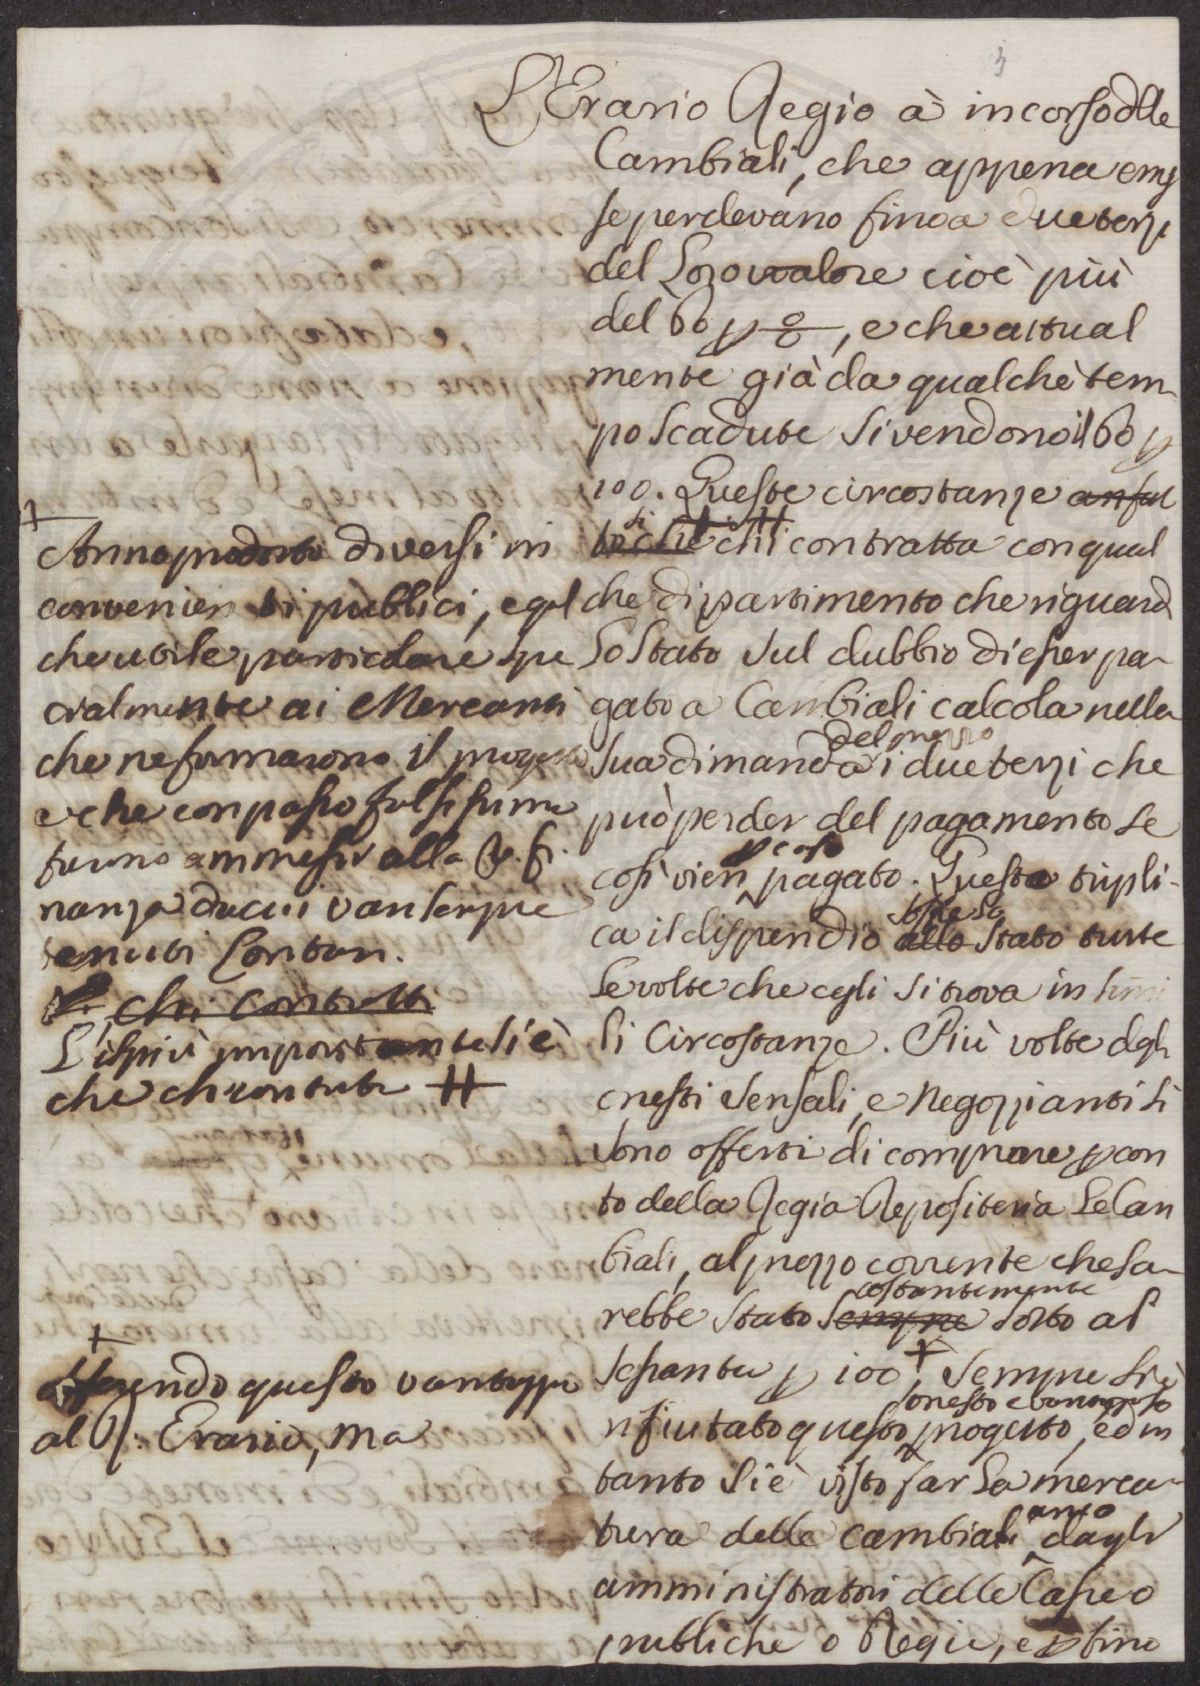 3
L'Erario Regio à in corso delle
Cambiali, che appena emes
se perdevano fino a due terzi
del Loro valore cioè più
del 60 p %, e che attual
mente già da qualchè tem
po scadute si vendono il 60 p
100. Queste circostanze
chi contratta con qual
che dipartimento che riguard
Lo Stato sul dubbio di esser pa-
gato a Cambiali calcola nella
del prezzo
sua dimanda i due terzi che
può perder del pagamento se
p caso
così vien pagato. Questo tripli-
spesa
ca il dispendio allo Stato tutte
Le volte che egli si trova in simi
li Circostanze. Più volte degli
onesti sensali, e Negozzianti si
sono offerti di comprare p con
to della Regia Repositeria Le Cam
biali, al prezzo corrente che sa-
costantemente
rebbe stato sempre sotto al
sessanta p 100 + sempre si è
onesto e vantaggioso
rifiutato questo progetto, ed in
tanto si è visto far La merca-
anco
tura delle cambiali dagli
amministratori delle Casse o
publiche o Regie, e p fino
+
Anno prodotto diversi in
convenienti publici, e qual
che utile particolare spe
cialmente ai Mercanti
che ne formarono il progetto
e che con passo falsissimo
furno ammessi alla R. fi
nanza da cui van sempre
tenuti Lontan.
chi contratta
L'il più importante si è
che chi contratta #
+
offrendo questo vantaggio
al R. Erario, ma